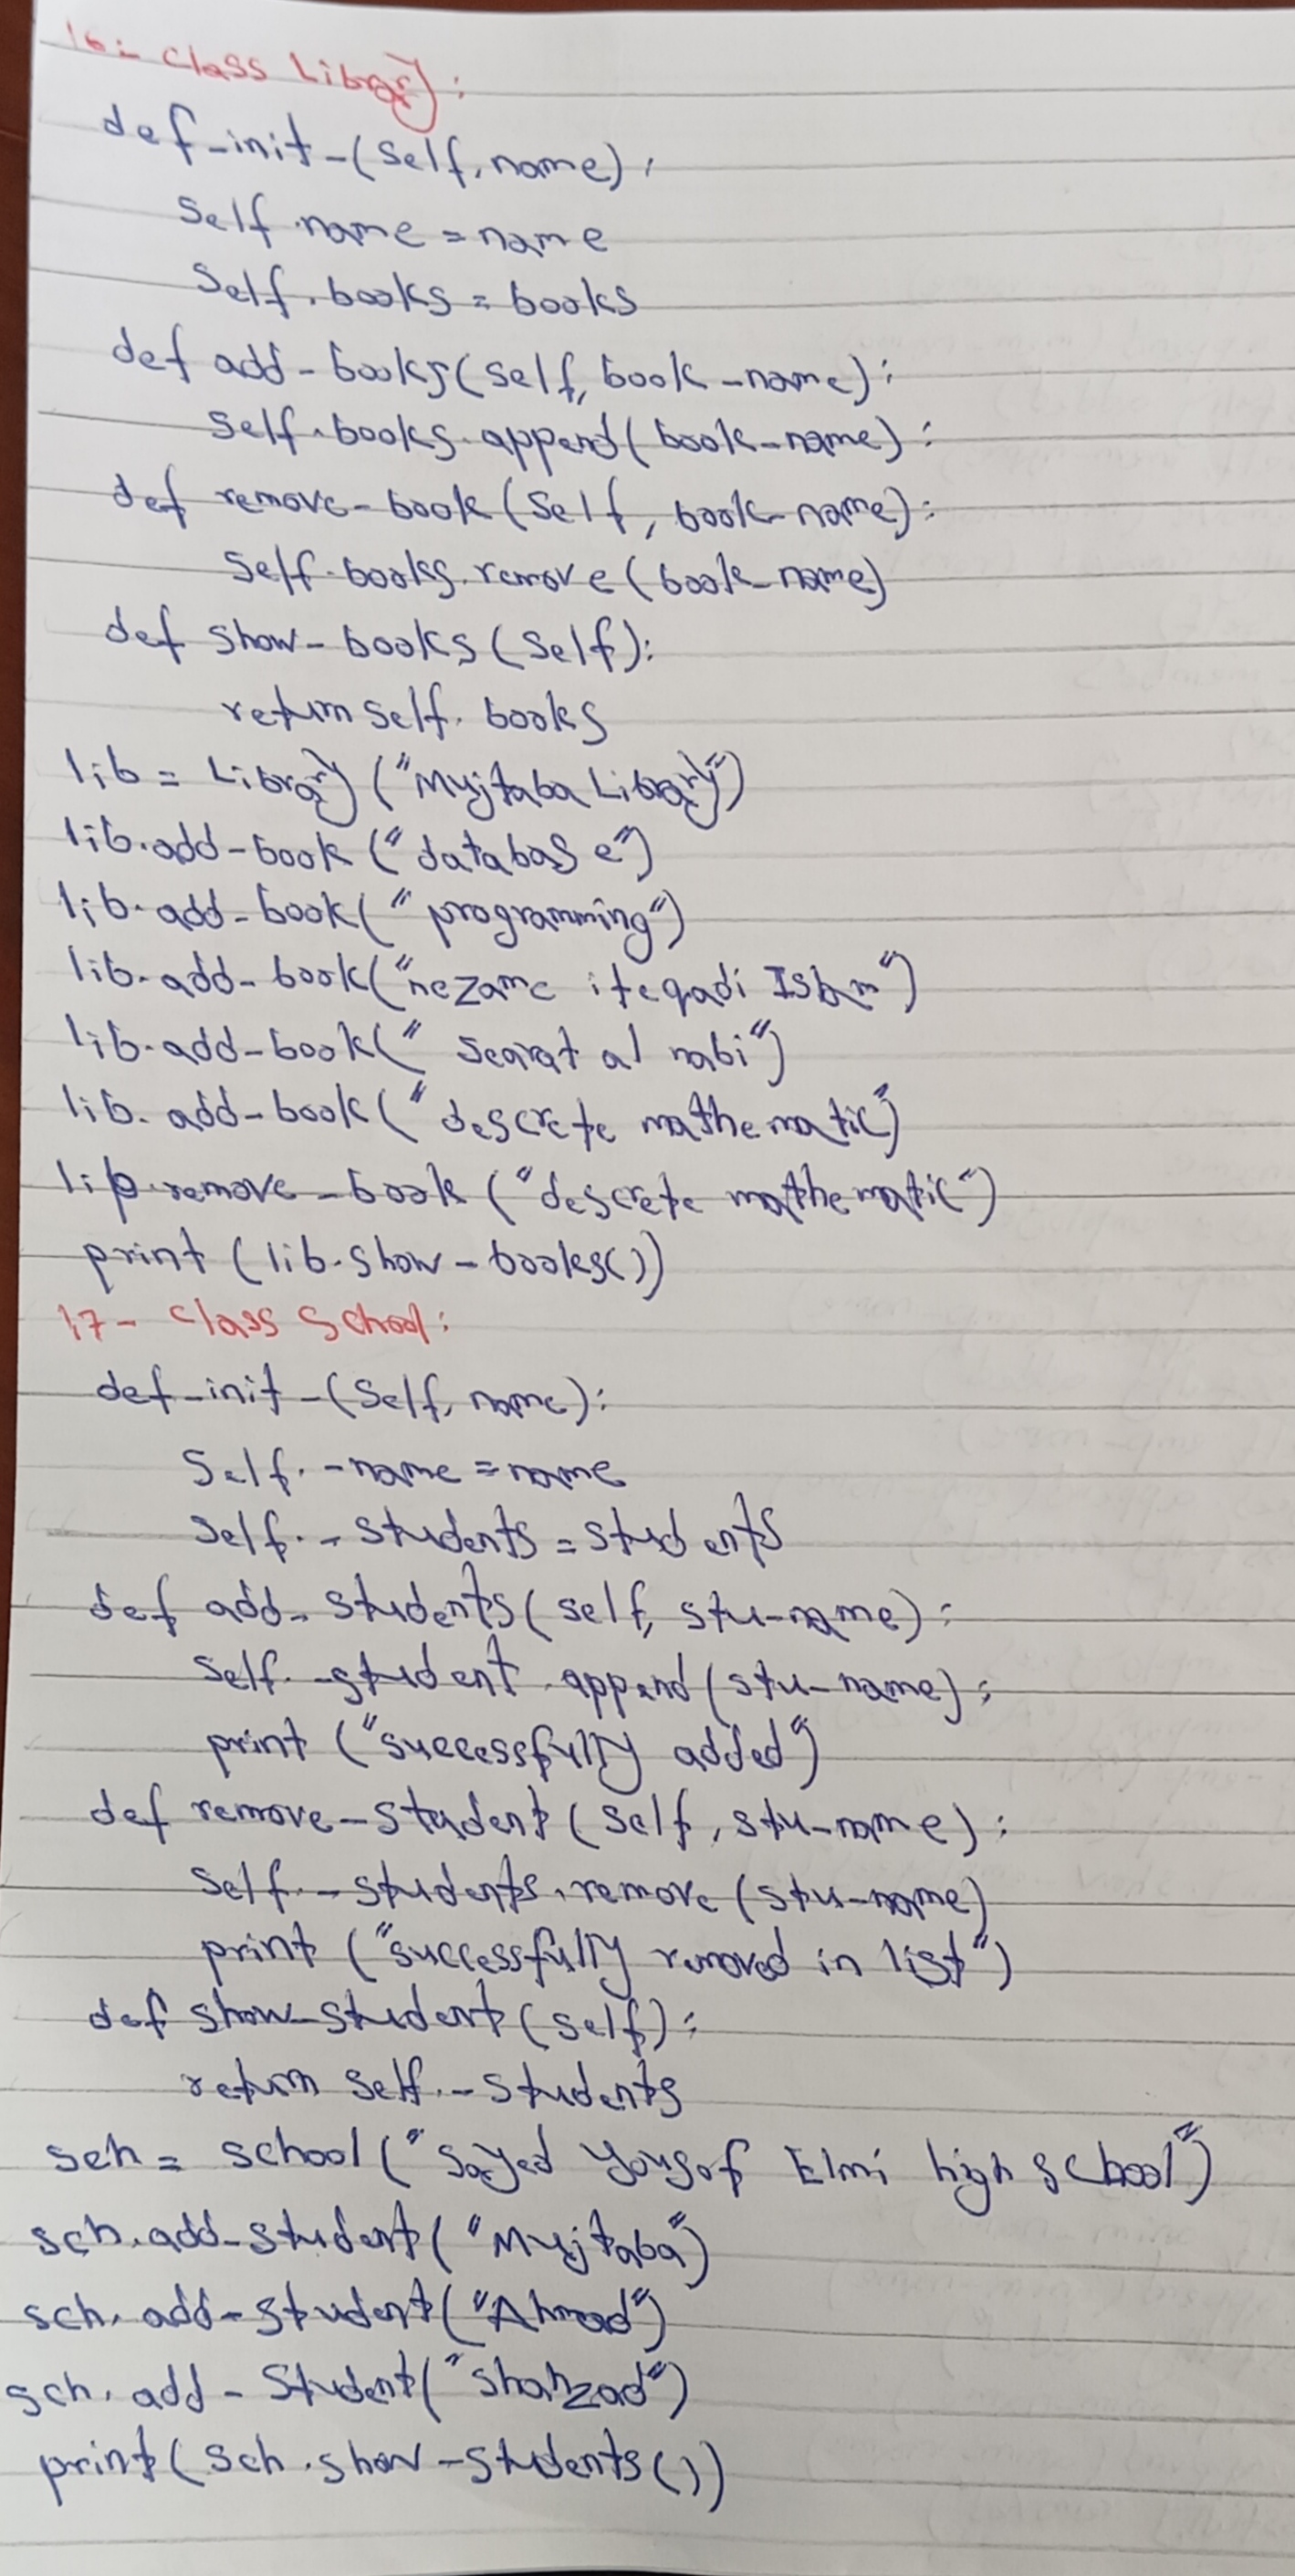 16:- class Library:
def_init_(self, name):
self.name = name
self.books = books
def add_books(self, book_name):
self.books.append(book_name):
def remove_book(self, book_name):
self.books.remove(book_name)
def show_books(self):
return self.books
lib = Library("Mujtaba Library")
lib.add_book("database")
lib.add_book("programming")
lib.add_book("nezame iteqadi Islam")
lib.add_book("searat al nabi")
lib.add_book("descrete mathematic")
lip.remove_book("descrete mathematic")
print(lib.show_books())
17- class School:
def_init_(self, name):
self._name = name
self._students = students
def add_students(self, stu_name):
self._student.append(stu_name):
print("successfully added")
def remove_student(self, stu_name):
self._students.remove(stu_name)
print("successfully removed in list")
def show_student(self):
return self._students
sch = school("Sayed Yousof Elmi high school")
sch.add_student("Mujtaba")
sch.add_student("Ahmad")
sch.add_student("shahzad")
print(sch.show_students())